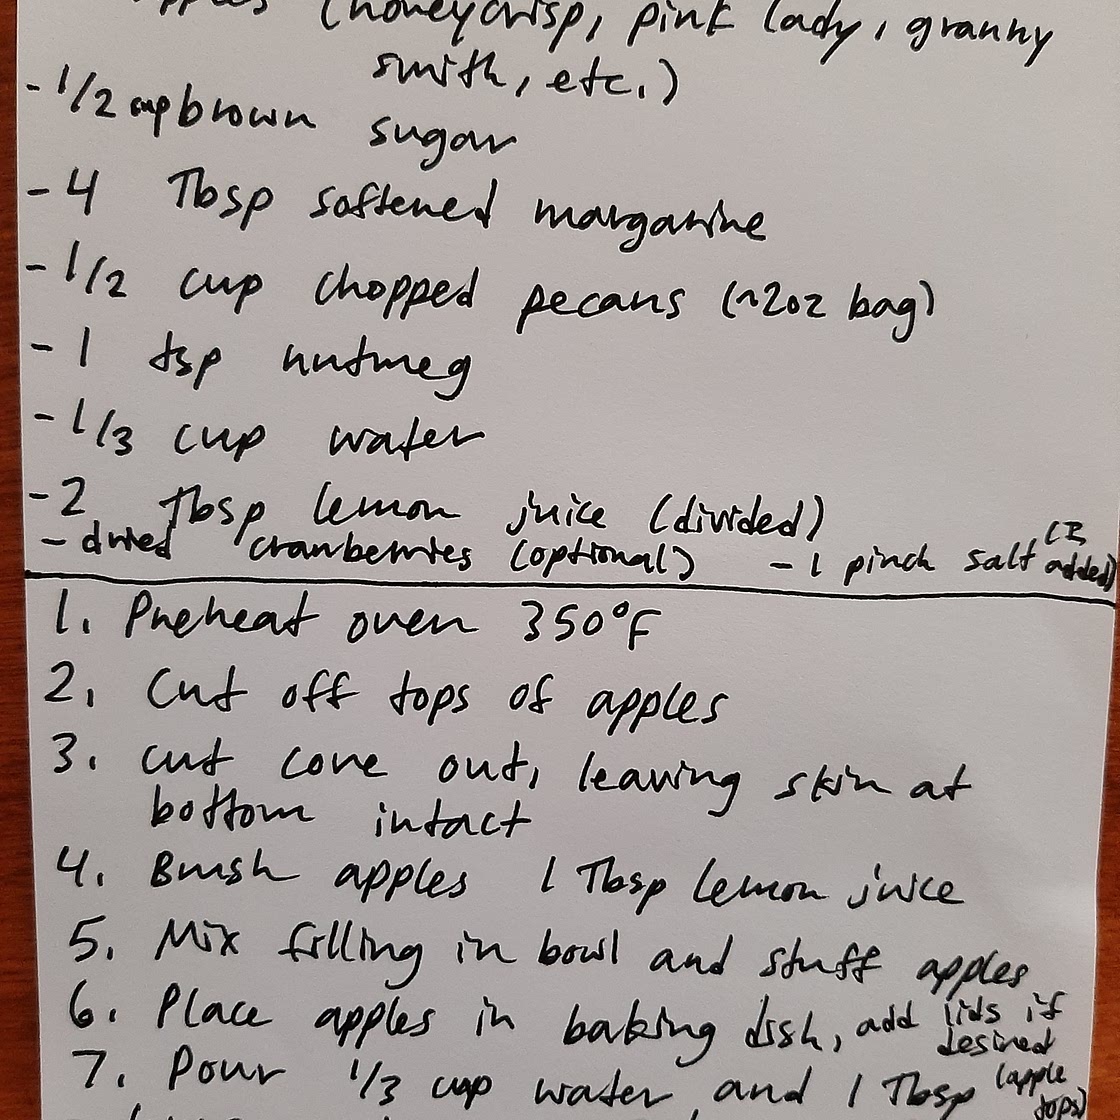 (honeycrisp, pink lady, granny
smith, etc.)
- 1/2 cup brown sugar
- 4 Tbsp softened margarine
- 1/2 cup chopped pecans (~2oz bag)
- 1 tsp nutmeg
- 1/3 cup water
- 2 Tbsp lemon juice (divided)
- dried cranberries (optional) - 1 pinch salt (I added)
1. Preheat oven 350°F
2. Cut off tops of apples
3. cut core out, leaving skin at
bottom intact
4. Brush apples 1 Tbsp lemon juice
5. Mix filling in bowl and stuff apples
6. Place apples in baking dish, add lids if
desired
(apple
tops)
7. Pour 1/3 cup water and 1 Tbsp